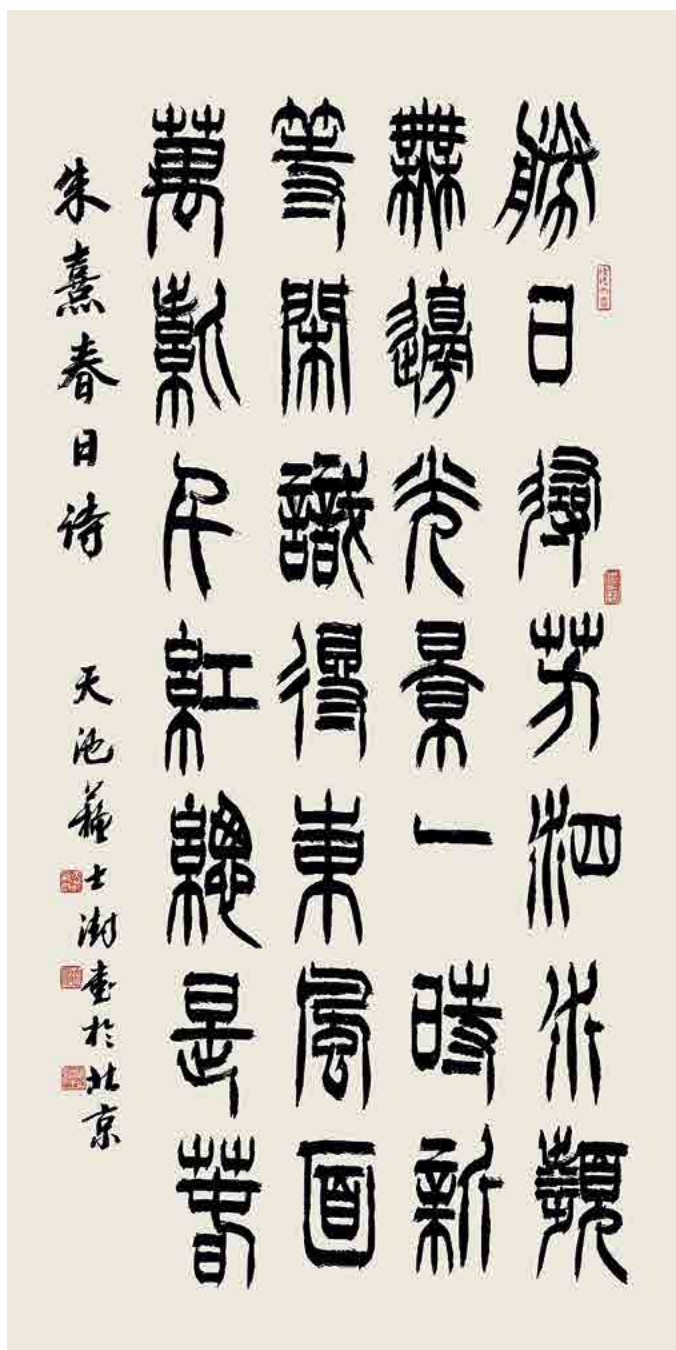 勝日尋芳泗水瀕
無邊光景一時新
等閑識得東風面
萬紫千紅總是春
朱熹春日诗 天池蘇士澍書於北京